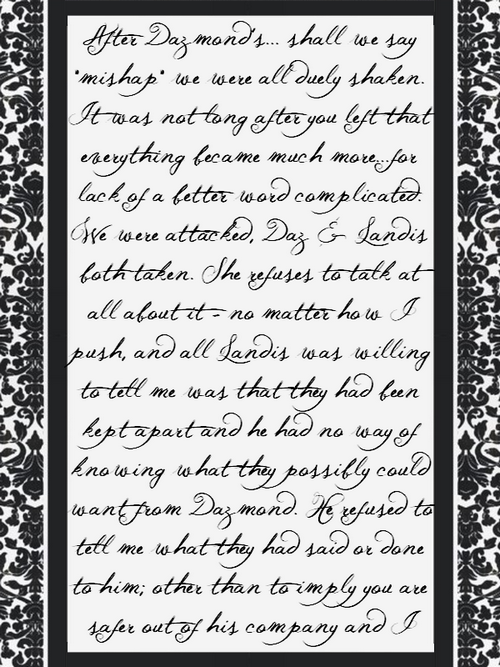 After Dazmond's... shall we say
"mishap" we were all duely shaken.
It was not long after you left that
everything became much more...for
lack of a better word complicated.
We were attacked, Daz & Landis
both taken. She refuses to talk at
all about it - no matter how I
push, and all Landis was willing
to tell me was that they had been
kept apart and he had no way of
knowing what they possibly could
want from Dazmond. He refused to
tell me what they had said or done
to him; other than to imply you are
safer out of his company and I